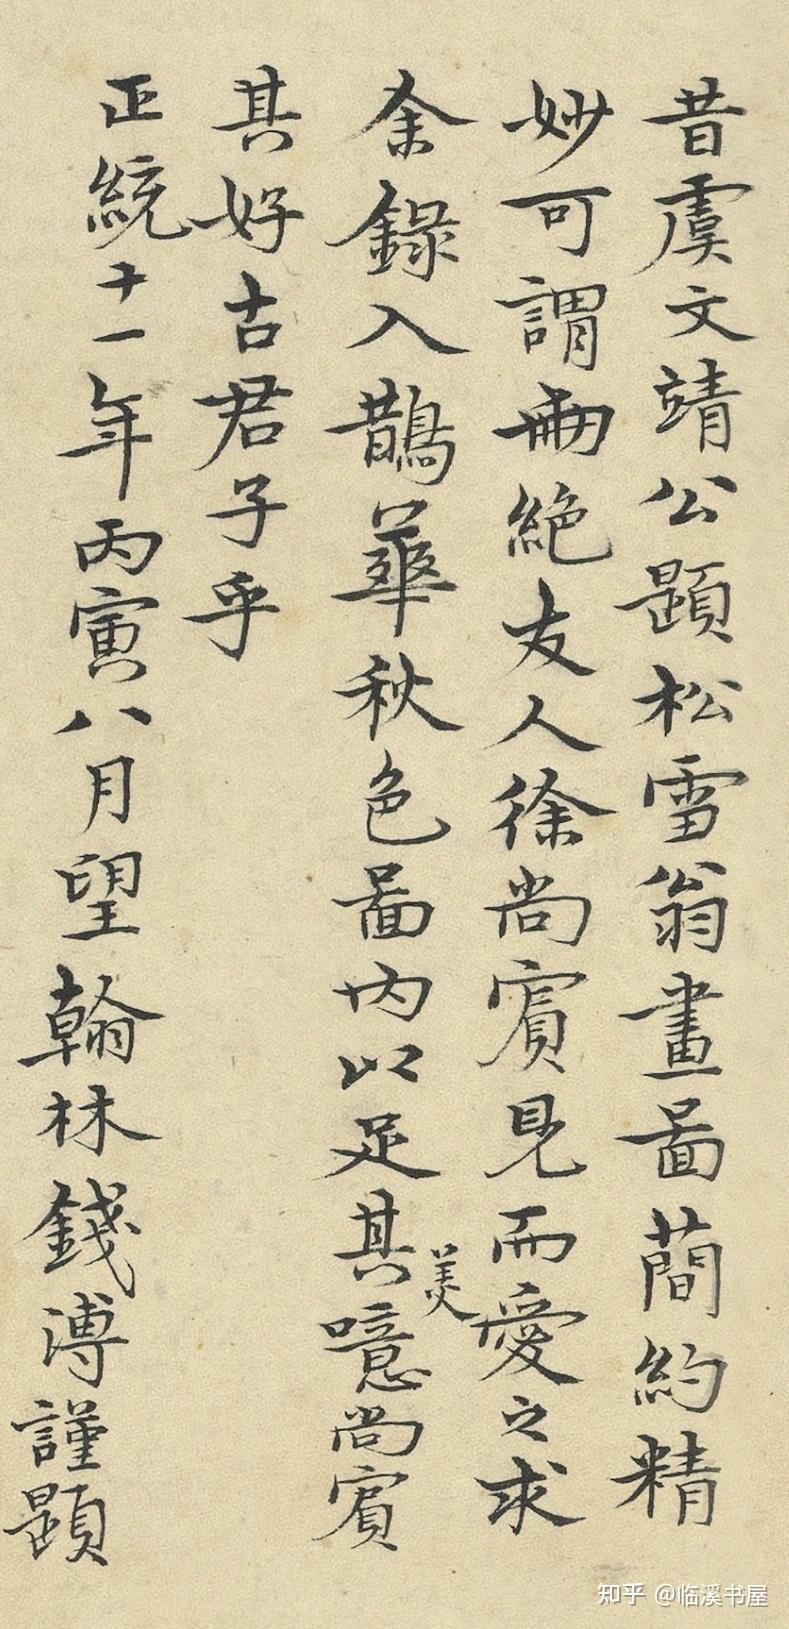 昔虞文靖公題松雪翁畫啚蕳約精
妙可謂兩絕友人徐尚賔見而愛之求
余錄入鵲華秋色啚內以足其美噫尚賔
其好古君子乎
正統十一年丙寅八月望翰林錢溥謹題
知乎 @临溪书屋